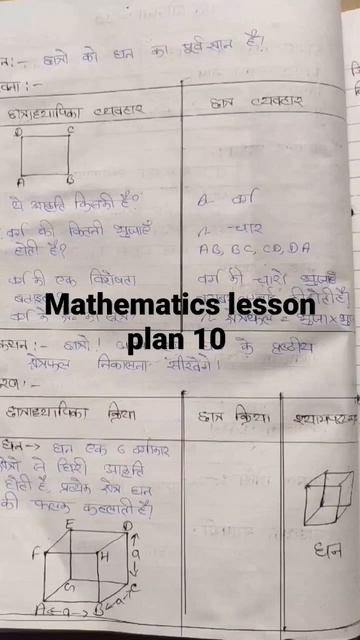 छात्रों को घन का पूर्वज्ञान है।
छात्राध्यापिका व्यवहार
छात्र व्यवहार
D C
A B
ये आकृति किसकी है?
वर्ग
वर्ग की कितनी भुजाएँ होती है?
चार
AB, BC, CD, DA
वर्ग की एक विशेषता
वर्ग की चारों भुजाएँ
Mathematics lesson
plan 10
छात्रों!
के पृष्ठीय
क्षेत्रफल निकालना सीखेंगे।
छात्राध्यापिका क्रिया
छात्र क्रिया
श्यामपट्ट
घन → घन एक 6 वर्गाकार
से घिरी आकृति
होती है, प्रत्येक क्षेत्र घन
की फलक कहलाती है।
घन
E D
F H a
G C
A ← a → B a